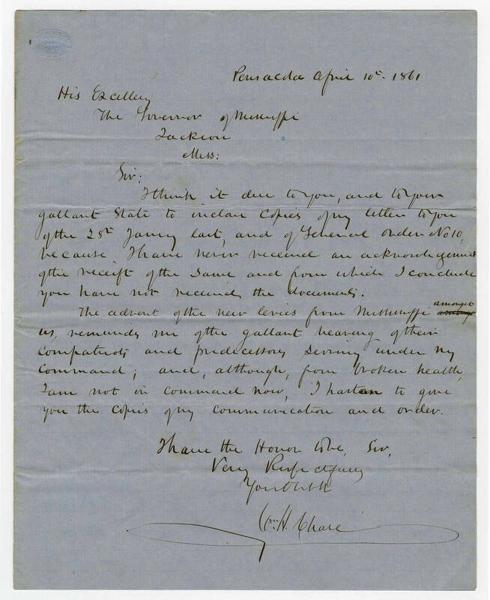 Pensacola April 10th 1861
His Excellency
The Governor of Mississippi
Jackson
Miss:
Sir:
I think it due to you, and to your
gallant State to inclose copies of my letter to you
of the 25t Janry last, and of General order No 10,
because I have never received an acknowledgement
of the receipt of the same and from which I conclude
you have not received the documents.
The advent of the new levies from Mississippi amongst
us, reminds me of the gallant bearing of their
compatriots and predecessors serving under my
command; and, although, from broken health,
I am not in command now, I hasten to give
you the copies of my communication and order.
I have the Honor to be, Sir,
Very Respectfully
Your Obt St
Wm H. Chase